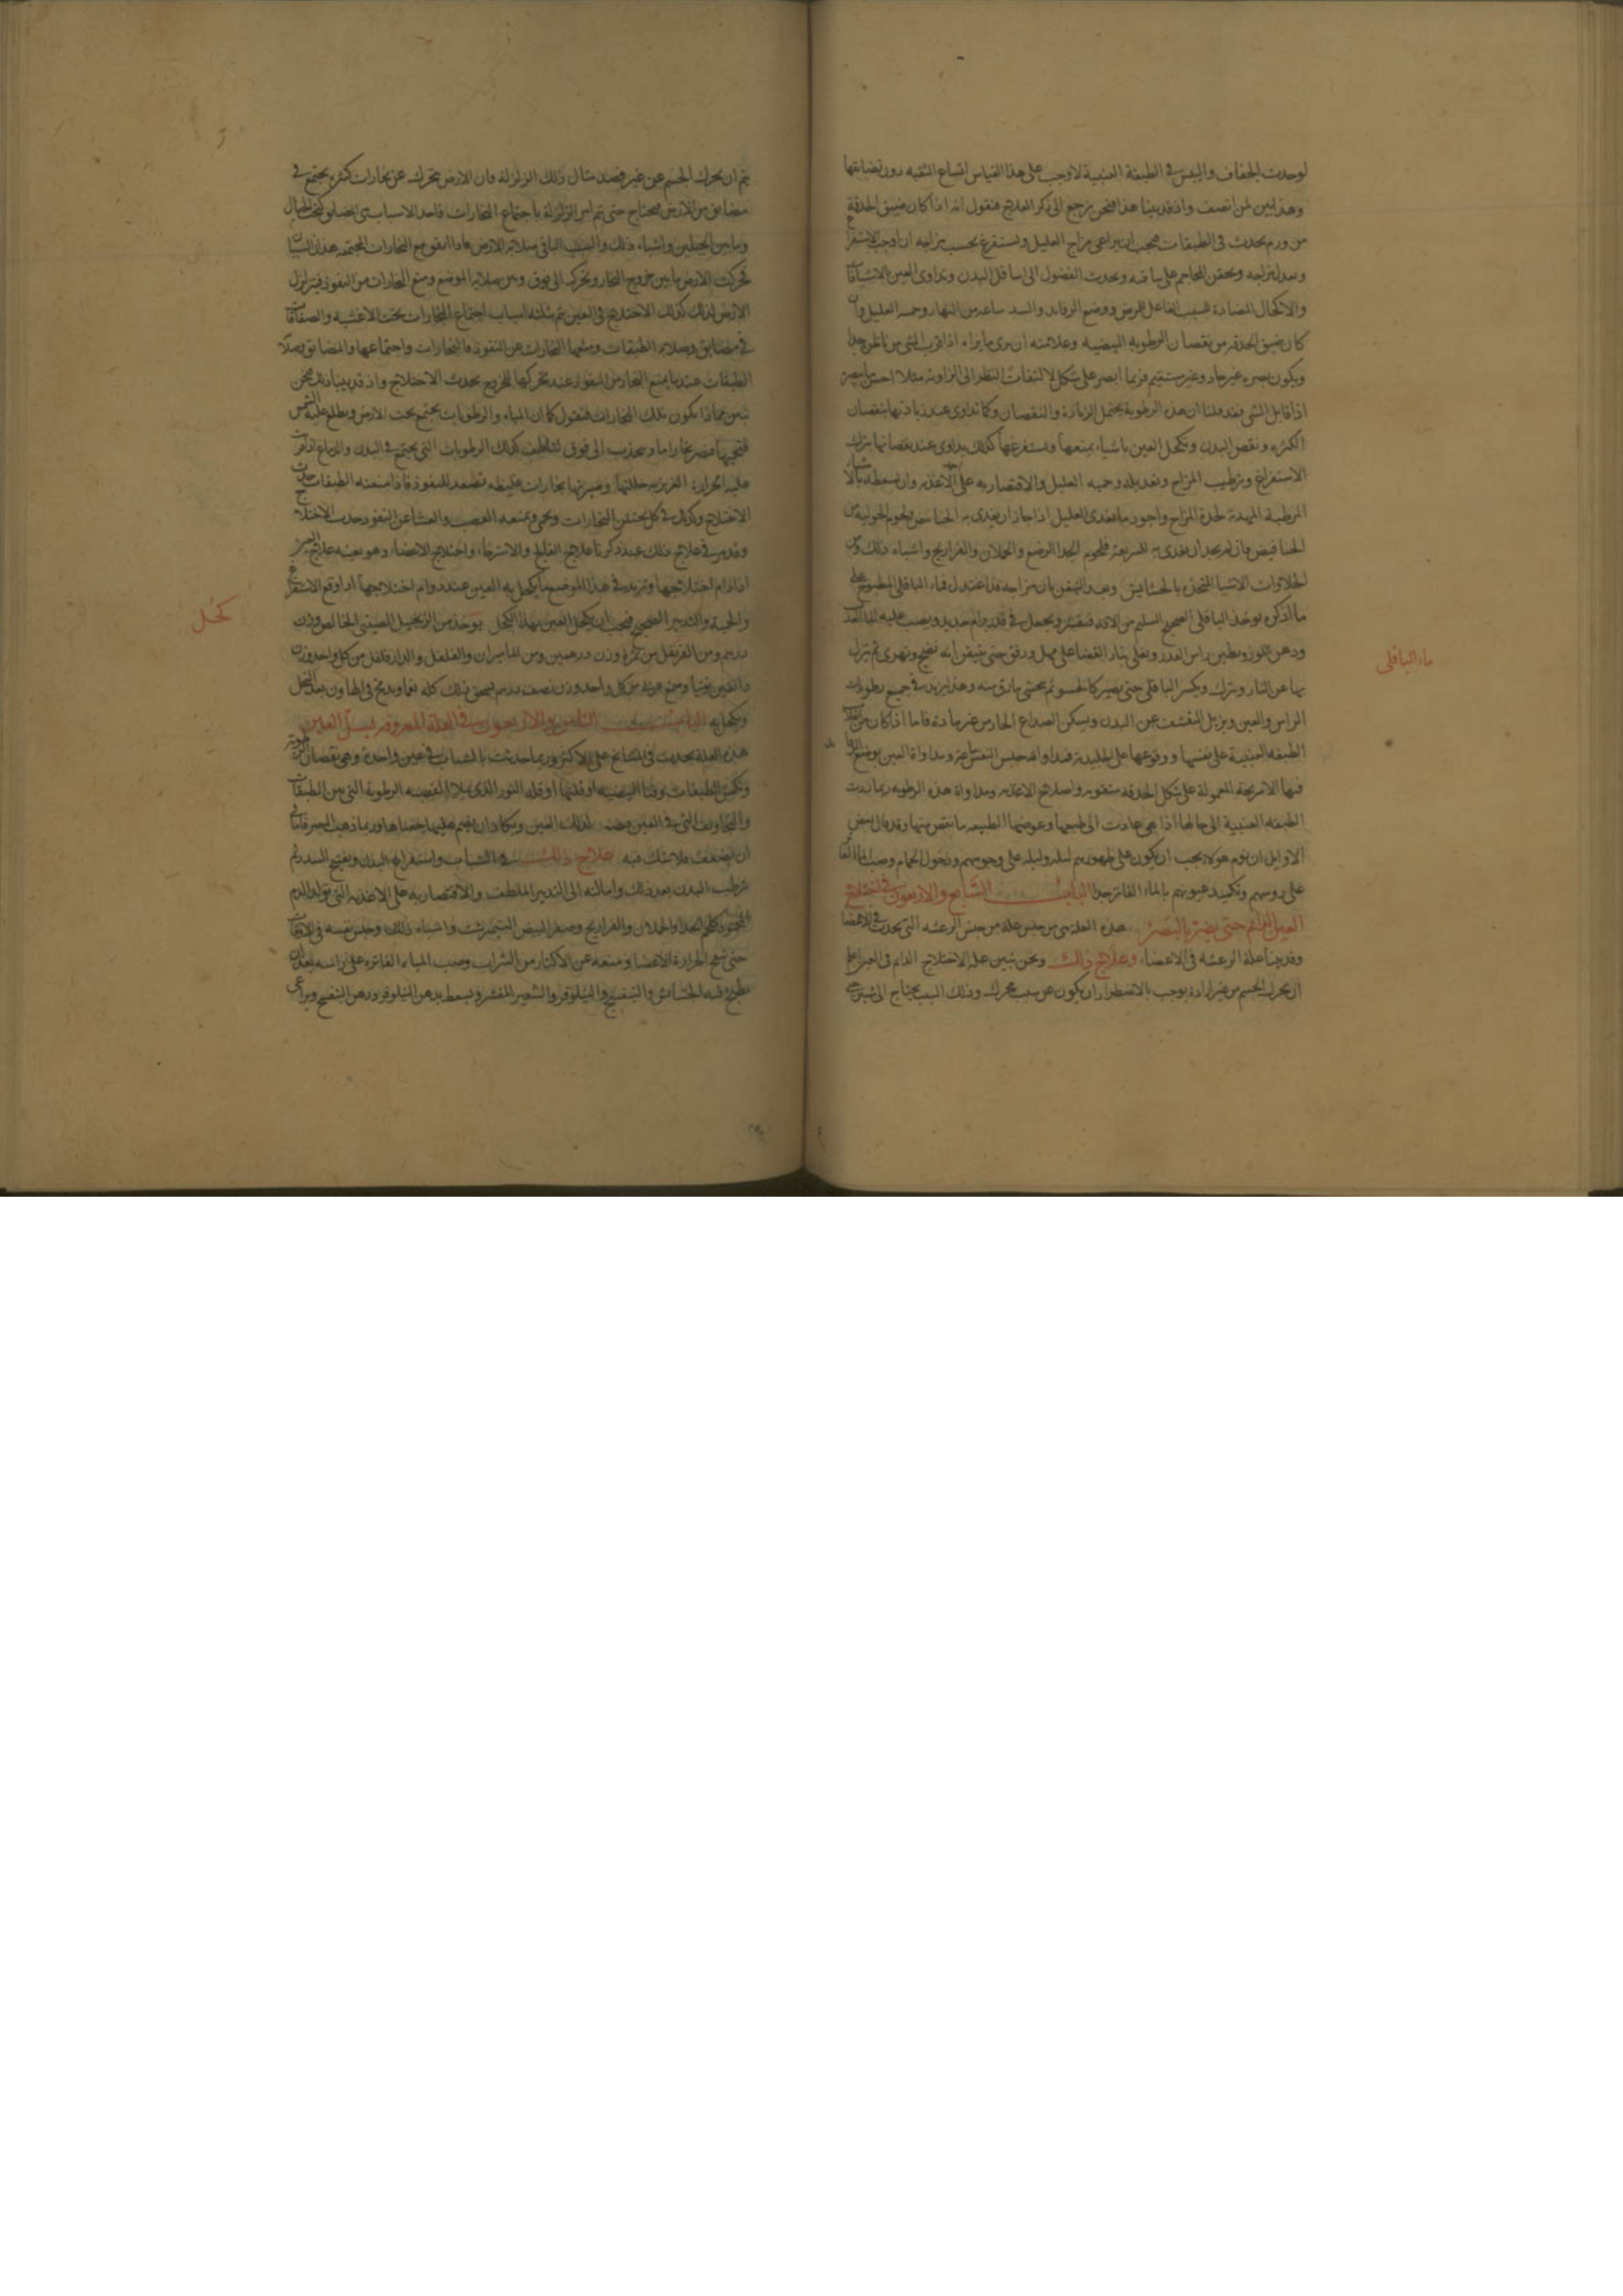 لوحدث الجفاف واليبس في الطبقة العنبية لاوجب على هذا القياس اتساع الثقبه دون تضايقها
وهذا بين لمن انصف واذ قد بينا هذا فنحن نرجع الى ذكر العلاج فنقول انه اذا كان ضيق الحدقة
من ورم يحدث في الطبقات فيجب ان يراعى مزاج العليل ويستفرغ بحسب مزاجه ان اوجب الاستفراغ
ويعدل مزاجه المحاجم على ساقيه ويحدث الفضول الى اسافل البدن وتداوى العين بالاشيافات
والاكحال المضادة للسبب الفاعل للمرض ووضع الرفايد والشد ساعه من النهار وحميه العليل وان
كان ضيق الحدقه من نقصان الرطوبه البيضيه وعلامته ان يرى ما يراه اذا قرب الشى من ناظره جدا
ويكون بصره غير حاد وغير مستقيم فربما ابصر على شكل الالتفات النظر الى الزاوية مثلا احسن ما يبصره
اذا قابل الشى فقد قلنا ان هذه الرطوبة يحتمل الزيادة والنقصان وكما تداوى عند زيادتها بنقصان
الكثره ونقص البدن وتكحل العين باشياء يمنعها ويستفرغها كذلك يداوى عند نقصانها بترك
الاستفراغ وترطيب المزاج وتعديله وحميه العليل والاقتصار به على الاغذيه وان يسعط بالاشياء
المرطبة المهدئة لحدة المزاج واجود ما يغذى العليل اذا جاز ان يغذى به ولحوم الحوليه من
فان لم يجد ان يغذى به فلحوم الجدا الرضع والحملان والفراريج واشباه ذلك ومن
الحلاوات الاشيا المتخذه بالخشخاش وبعد التيقن بان مزاجه قد اعتدل فماء الباقلى المطبوخ على
ما اذكره يوخذ الباقلى الصحيح السليم من الافه فيقشر ويجعل في قدر برام جديد ويصب عليه الماء العذب
ودهن اللوز ويطين راس القدر ويغلى بنار الغضا على مهل ورفق حتى يتيقن انه نضج وتهرى ثم تنزل
بها عن النار ويترك ويكسر الباقلى حتى يصير كالحسو ثم يحتسى مارق منه وهذا يزيد في جميع رطوبات
الراس والعين ويزيل التقشف عن البدن ويسكن الصداع الحادث من غير مادة فاما اذا كان من
الطبقه العنبية على نفسها ووقوعها على الجليديه فمداواته حبس النفس ساعة ومداواة العين بوضع
فيها المعمولة على شكل الحدقه واصلاح الاغذيه ومداواة هذه الرطوبه ربما ردت
الطبقه العنبية الى حالها اذا هي عادت الى طبعها وعوضها الطبيعه ما نقص منها وقد قال بعض
الاوايل ان نوم هولاء يجب ان يكون على ظهورهم ليله وليله على وجوههم ودخول الحمام وصب الماء الفاتر
على روسهم وتكميد عيونهم بالماء الفاتر جدا الباب السابع والاربعون في اختلاج
العين الدائم حتى يضر بالبصر هذه العله هي من جنس علة من جنس الرعشه التي يحدث في الاعضا
وقد بينا علة الرعشه في الاعضاء وعلاج ذلك ونحن نبين علة الاختلاج الدايم في العين اعلم
ان يحرك الجسم من غير ارادة يوجب بالاضطرار ان يكون عن سبب محرك وذلك السبب يحتاج الى شيين حتى
ماء الباقلى
يتم ان يحرك الجسم عن غير قصد مثال ذلك الزلزلة فان الارض تتحرك عن بخارات كثيره يجتمع في
مضايق من الارض فيحتاج حتى يتم امر الزلزلة باجتماع البخارات فاحد الاسباب هي المضايق كتحت الجبال
وما بين الجبلين واشباه ذلك والسبب الباقي صلابه الارض فاذا اتفق مع البخارات المجتمعه هذان السببان
تحركت الارض ما بين خروج البخار وتحركه الى فوق وبين صلابه الموضع ومنع البخارات من النفوذ فيتزلزل
الارض لذلك كذلك الاختلاج في العين يتم بثلثه اسباب اجتماع البخارات تحت الاغشيه والصفاقات
في مضايق وصلابه الطبقات ومنعها البخارات عن النفوذ فالبخارات واجتماعها والمضايق وصلابة
الطبقات عندما يمنع البخار من النفوذ عند تحركها للخروج يحدث الاختلاج واذ قد بينا ذلك فنحن
نبين مماذا يكون تلك البخارات فنقول كما ان المياه والرطوبات يجتمع تحت الارض ويطلع عليه الشمس
بخارا ما وينجذب الى فوق كذلك الرطوبات التي يجتمع في البدن والدماغ اذا مرت
عليه الحرارة الغريزيه حللتها وصيرتها بخارات غليظه تصعد للنفوذ فاذا منعته الطبقات حدث
الاختلاج وكذلك في كل البخارات وتمنعه العصب والغشا عن النفوذ حدث الاختلاج
وقد مر في علاج ذلك عند ذكرنا علاج الفالج والاسترخاء واختلاج الاعضاء وهو بعينه علاج العين
اذا دام اختلاجها ونزيد في هذا الموضع ما يكحل به العين عند دوام اختلاجها اذا وقع الاستفراغ
والحمية والتدبير الصحيح فيجب ان يكحل العين بهذا الكحل يوخذ من الزنجبيل الصيني الخالص وزن
درهم ومن القرنفل وزن درهمين ومن الماميران والفلفل والدارفلفل من كل واحد وزن
دانقين توتيا وصمغ عربي من كل واحد وزن نصف درهم يسحق ذلك كله نعما ويدبج في الهاون بعد النخل
ويكحل به الباب الثامن والاربعون في العلة المعروفه بسل العين
هذه العلة يحدث في المشايخ على الاكثر وربما حدثت بالشباب في عين واحدة وهي نقصان الرطوبة
الطبقات وفنا البيضيه او قلتها او قله النور الذي يملا العصبه الرطوبة التي بين الطبقات
والتجاويف التي في العين لذلك العين ويكاد ان ينضم عليها جفناها وربما ذهب البصر فاما
ان يضعف فلا شك فيه علاج ذلك في الشباب واستفراغ البدن وتفتيح السدد ثم
ترطيب البدن بعد ذلك وامالته الى التدبير الملطف والاقتصار به على الاغذيه التي تولد الدم
المحمود كلحم الجدا والحملان والفراريج وصفرة البيض النيمرشت واشباه ذلك وحبس نفسه في الاوقات
حتى تتهيج الحرارة الاعضا ومنعه عن الاكثار من الشراب وصب المياه الفاتره على راسه بعد ان
يطبخ فيه الخشخاش والبنفسج والنيلوفر والشعير المقشر ويسعط بدهن النيلوفر ودهن البنفسج ويراعى
كحل